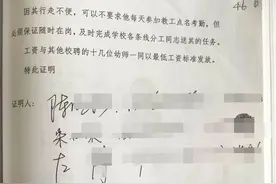 46
因其行走不便，可以不要求他每天参加教工点名考勤，但
必须保证随时在岗，及时完成学校各条线分工同志送其的任务。
工资与其他校聘的十几位幼师一同以最低工资标准发放。
特此证明
证明人：陈
朱
左